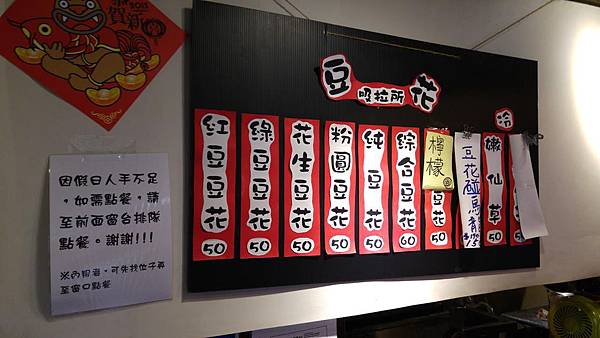 2015
恭賀新
豆花
毆拉所
冷
紅豆豆花 50
綠豆豆花 50
花生豆花 50
粉圓豆花 50
純豆花 50
綜合豆花 60
檸檬
豆花 50
豆花碰烏龍
嫩仙草 50
因假日人手不足
，如需點餐，請
至前面窗台排隊
點餐。謝謝!!!
※內用者，可先找位子再
至窗口點餐